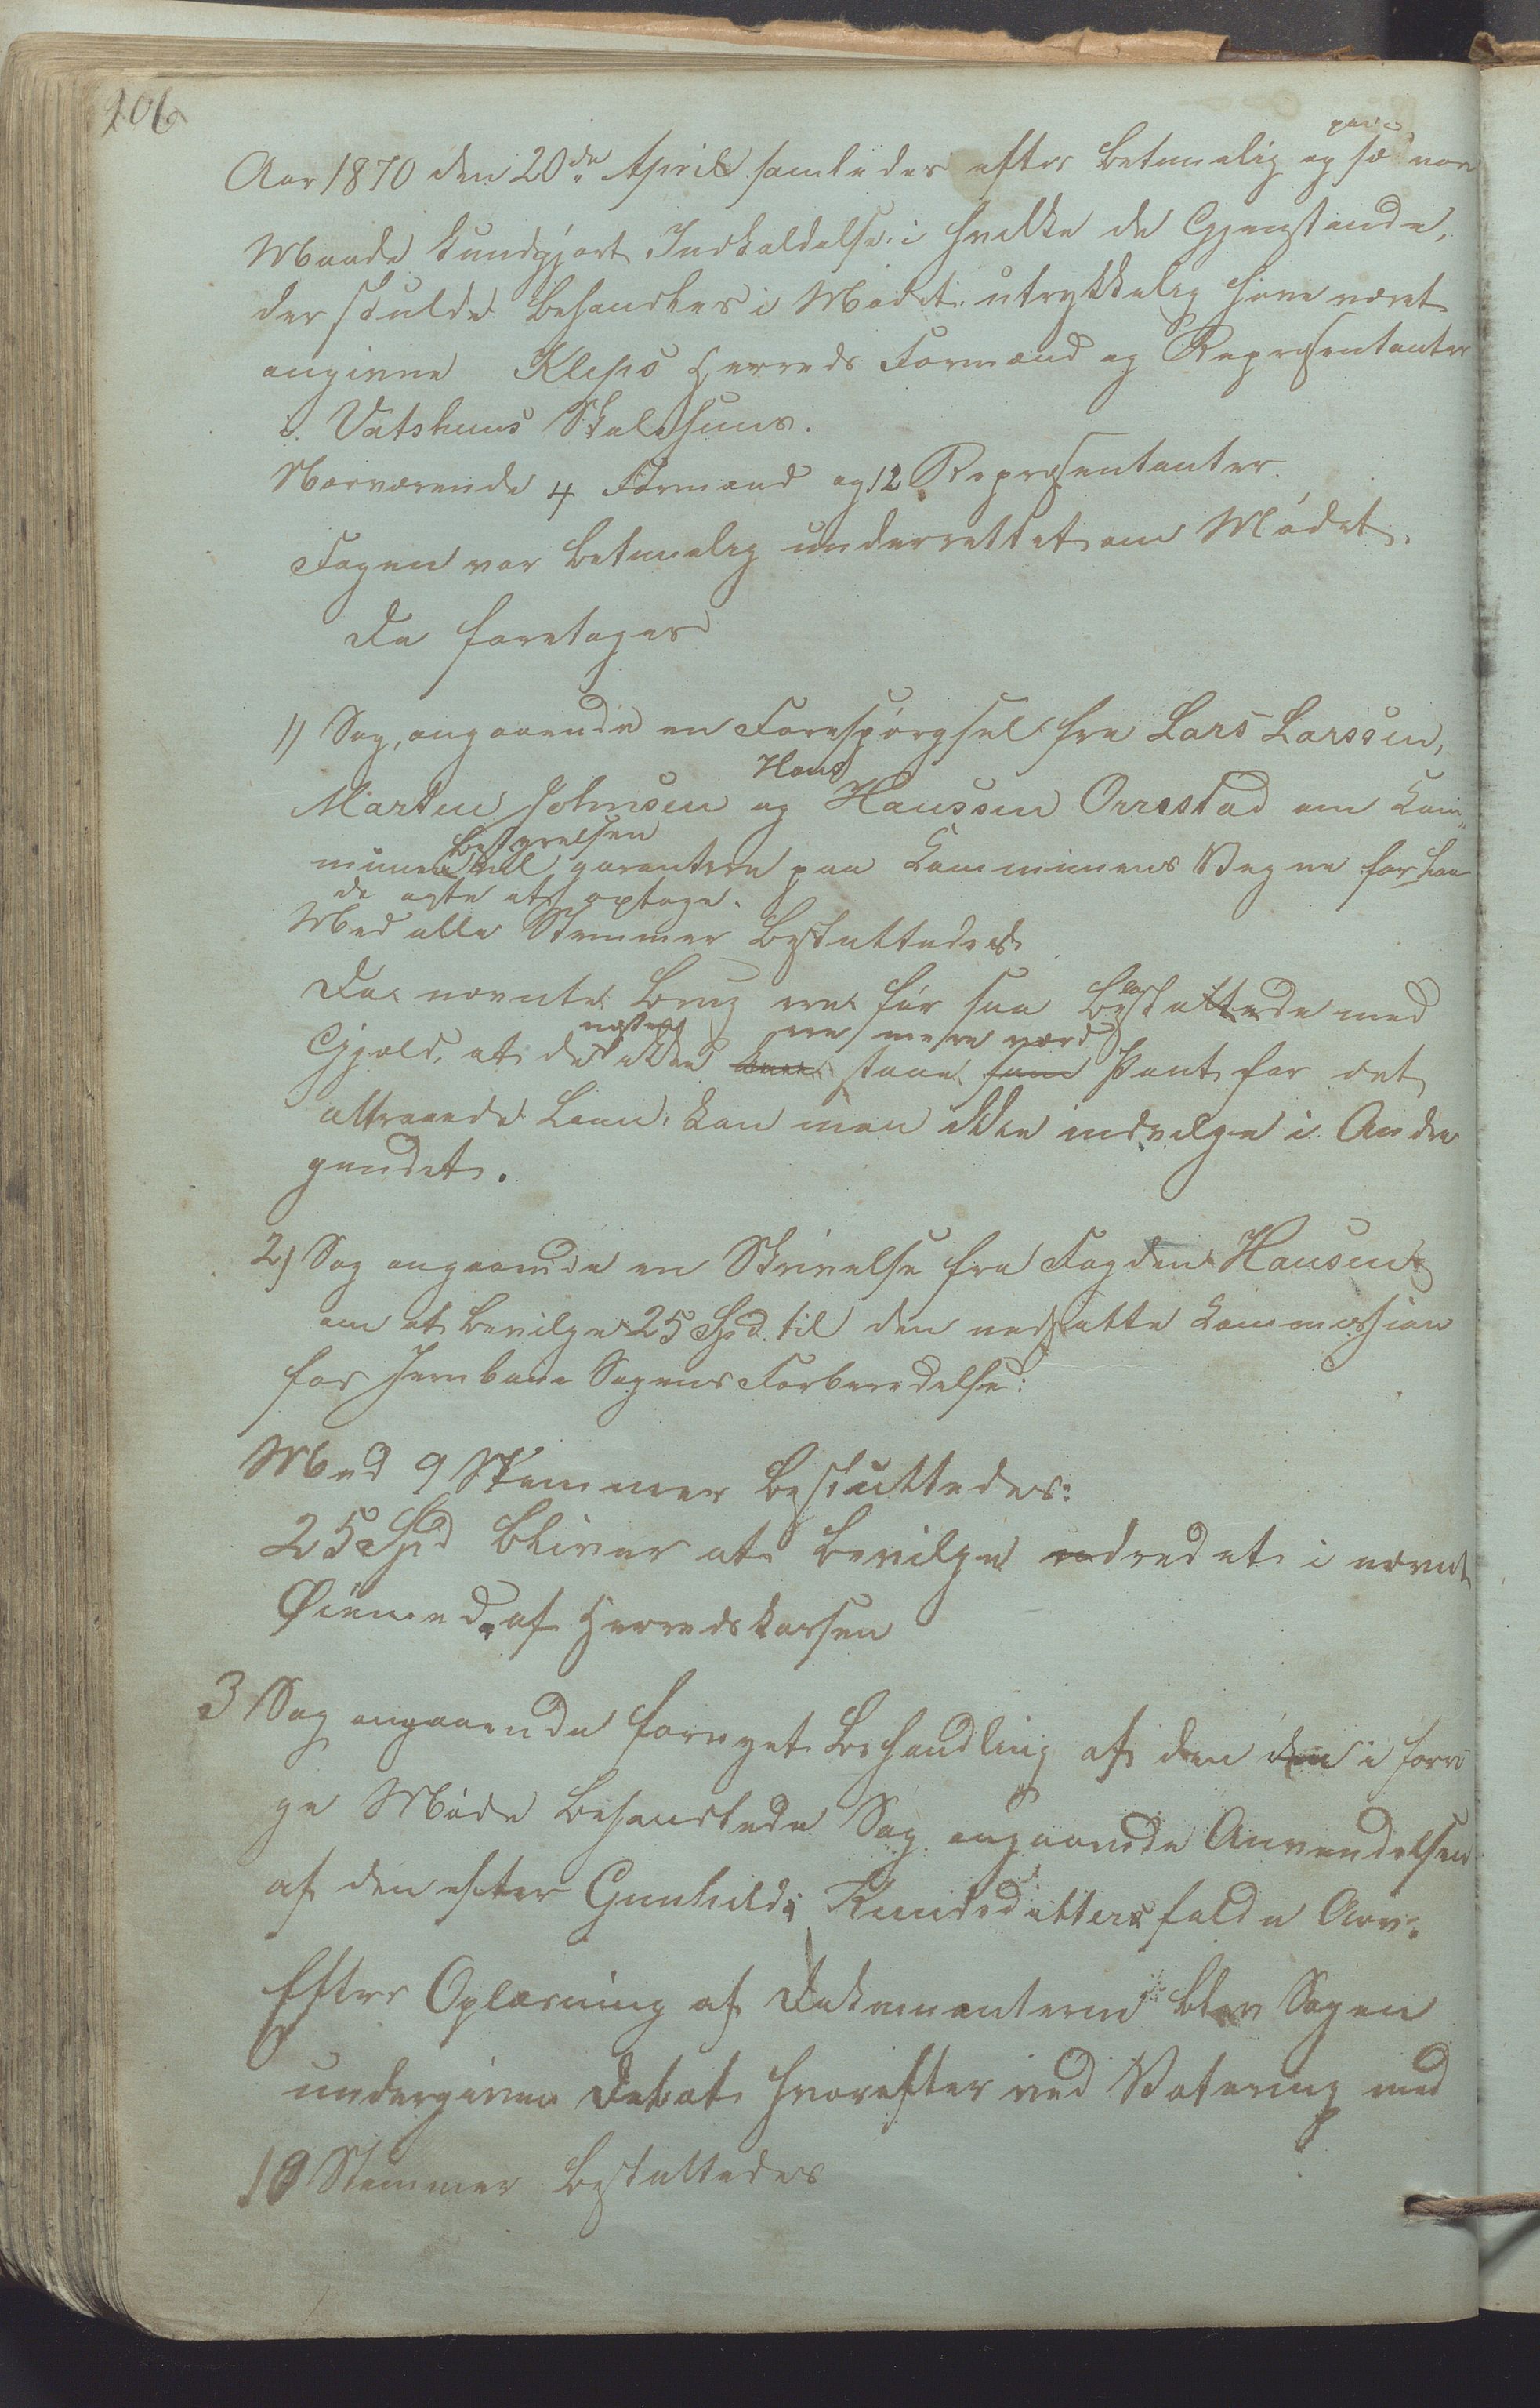 206
Aar 1870 den 20de April samledes efter betimelig og paa sædvan
Maade kundgjort Indkaldelse i hvilke de Gjenstande,
der skulde behandles i Mødet utrykkelig have været
angivne Kleps Herreds Formænd og Repræsentanter
i Vatshuus Skolehuus.
Nærværende 4 Formænd og 12 Repræsentanter.
Fogen var betimelig underrettet om Mødet.
Da foretoges
1) Sag, angaaende en Forespørgsel fra Lars Larssen,
Martin Johnsen og Hans Hanssen Orrestad om Kom-
munebestyrelsen vil garantere paa Kommunens Vegne for Laan
de agte at optage.
Med alle Stemmer besluttedes
Da nævnte Brug ere før saa belastede med
Gjæld, at de næsten ikke ere mere værd staae som Pant for det
attraaede Laan, kan man ikke indvilge i Andra
gendet.
2) Sag angaaende en Skrivelse fra Fogden Hansen
om at bevilge 25 Spd. til den nedsatte Kommission
for Jernbane Sagens Forberedelse:
Med 9 Stemmer besluttedes:
25 Spd bliver at bevilge udredet i nævnt
Øiemed af Herredskassen
3 Sag angaaende fornyet Behandling af den den i forri
ge Møde behandlede Sag angaaende Anvendelsen
af den efter Gunhild Knudsdatter faldne Arv.
Efter Oplæsning af Dokumenterne blev Sagen
undergiven Debat hvorefter ved Votering med
10 Stemmer besluttedes